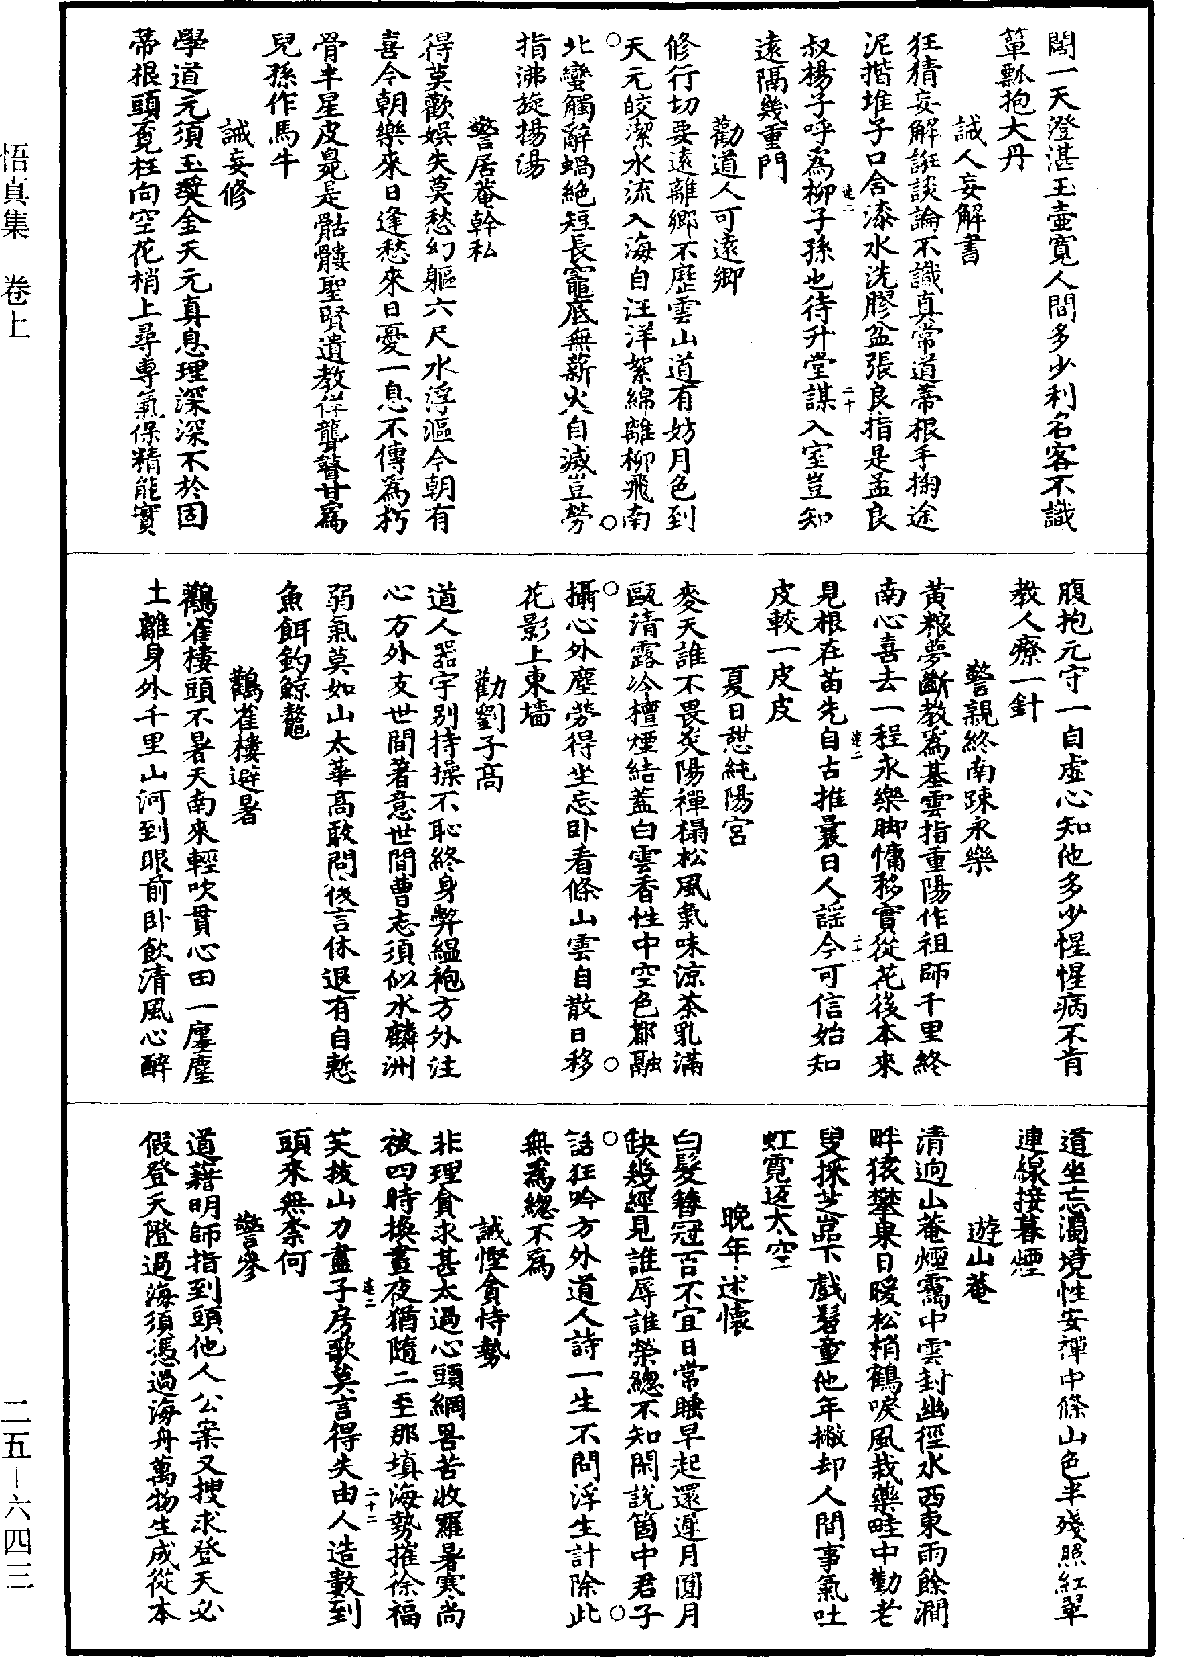 闊一天澄湛玉壺寬人間多少利名客不識
簞瓢抱大丹
誡人妄解書
狂猜妄解誑談論不識真常道蒂根手搊途
泥揩堆子口含漆水洗膠盆張良指是孟良
叔楊子呼為柳子孫也待升堂謀入室豈知
遠隔幾重門
勸道人可遠鄉
修行切要遠離鄉不歷雲山道有妨月色到
天元皎潔水流入海自汪洋絮綿離柳飛南
北蠻觸辭蝸絶短長竈底無薪火自滅豈勞
指沸旋揚湯
警居菴幹私
得莫歡娛失莫愁幻軀六尺水浮漚今朝有
喜今朝樂來日逢愁來日憂一息不傳為朽
骨半星皮是骷髏聖賢遺教徉聾瞽甘為
兒孫作馬牛
誡妄修
學道元須玉獎金天元真息理深深不於固
蒂根頭覓枉向空花梢上尋專氣保精能實
腹抱元守一自虛心知他多少惺惺病不肯
教人療一針
警親終南踈永樂
黃粮夢斷教為基雲指重陽作祖師千里終
南心喜去一程永樂脚慵移實從花後本來
見根在苗先自古推曩日人謡今可信始知
皮較一皮皮
夏日憇純陽宮
麥天誰不畏炎陽禪榻松風氣味涼茶乳滿
甌清露冷檀煙結蓋白雲香性中空色都融
攝心外塵勞得坐忘卧看條山雲自散日移
花影上東墻
勸劉子高
道人器宇別持操不恥終身弊緼袍方外注
心方外友世間著意世間曹志須似水麟洲
弱氣莫如山太華高敢問後言休退有自慙
魚餌釣鯨鼇
鸛雀樓避暑
鸛雀樓頭不暑天南來輕吹貫心田一塵塵
土離身外千里山河到眼前卧飲清風心醉
道坐忘濁境性安禪中條山色半殘照紅翠
連線接暮煙
遊山菴
清逈山菴煙靄中雲封幽徑水西東雨餘澗
畔猿攀果日暖松梢鶴唳風栽藥畦中勤老
叟採芝嵓下戲髫童他年撇却人間事氣吐
虹霓逗太空
晚年述懷
白髮簪冠百不宜日常睡早起還遲月圓月
缺幾經見誰辱誰榮總不知閑說箇中君子
話狂吟方外道人詩一生不問浮生計除此
無為總不為
誡慳貪恃勢
非理貪求甚太過心頭網罟苦收羅暑寒尚
被四時換晝夜猶隨二至那填海勢摧徐福
笑拔山力盡子房歌莫言得失由人造數到
頭來無柰何
警參
道藉明師指到頭他人公案又搜求登天必
假登天隥過海須憑過海舟萬物生成從本
悟真集 卷上
二五—六四三